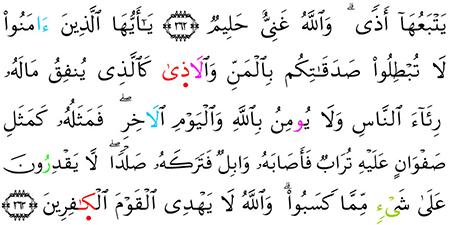 يَتْبَعُهَآ أَذٗىۗ وَاللَّهُ غَنِيٌّ حَلِيمٞ ٢٦٢ يَٰٓأَيُّهَا الَّذِينَ ءَامَنُواْ
لَا تُبْطِلُواْ صَدَقَٰتِكُم بِالْمَنِّ وَالَاذ۪ىٰ كَالَّذِي يُنفِقُ مَالَهُۥ
رِئَآءَ النَّاسِ وَلَا يُومِنُ بِاللَّهِ وَالْيَوْمِ الَاخِرِۖ فَمَثَلُهُۥ كَمَثَلِ
صَفْوَانٍ عَلَيْهِ تُرَابٞ فَأَصَابَهُۥ وَابِلٞ فَتَرَكَهُۥ صَلْدٗاۖ لَّا يَقْدِرُونَ
عَلَىٰ شَيْءٖ مِّمَّا كَسَبُواْۗ وَاللَّهُ لَا يَهْدِي الْقَوْمَ الْكٰ۪فِرِينَ ٢٦٣